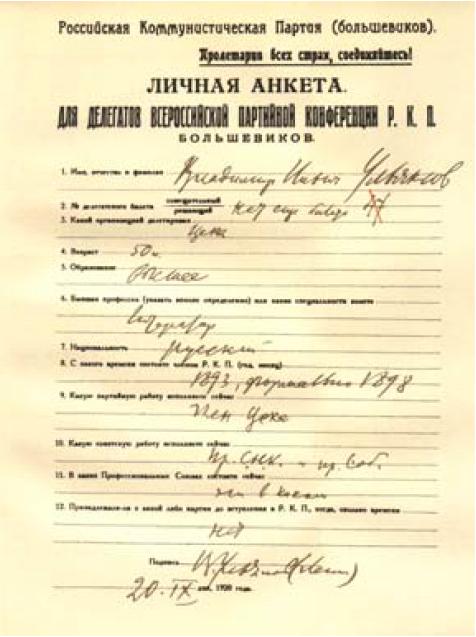 Российская Коммунистическая Партия (большевиков).
Пролетарии всех стран, соединяйтесь!
ЛИЧНАЯ АНКЕТА.
ДЛЯ ДЕЛЕГАТОВ ВСЕРОССИЙСКОЙ ПАРТИЙНОЙ КОНФЕРЕНЦИИ Р. К. П.
БОЛЬШЕВИКОВ.
1. Имя, отчество и фамилия Владимир Ильич Ульянов
2. № делегатского билета совещательный решающий нет еще билета
3. Какой организацией делегирован
Цека
4. Возраст 50 л.
5. Образование
высшее
6. Бывшая профессия (указать вполне определенно) или какие специальности знаете
литератор
7. Национальность русский
8. С какого времени состоите членом Р. К. П. (год, месяц)
1893, формально 1898
9. Какую партийную работу исполняете сейчас
член Цека
10. Какую советскую работу исполняете сейчас
пр. С.Н.К. и пр. Соб.
11. В каких Профессиональных Союзах состоите сейчас
12. Принадлежали-ли к какой либо партии до вступления в Р. К. П., когда, сколько времени
нет
Подпись В. Ульянов (Ленин)
20. IX дня, 1920 года.